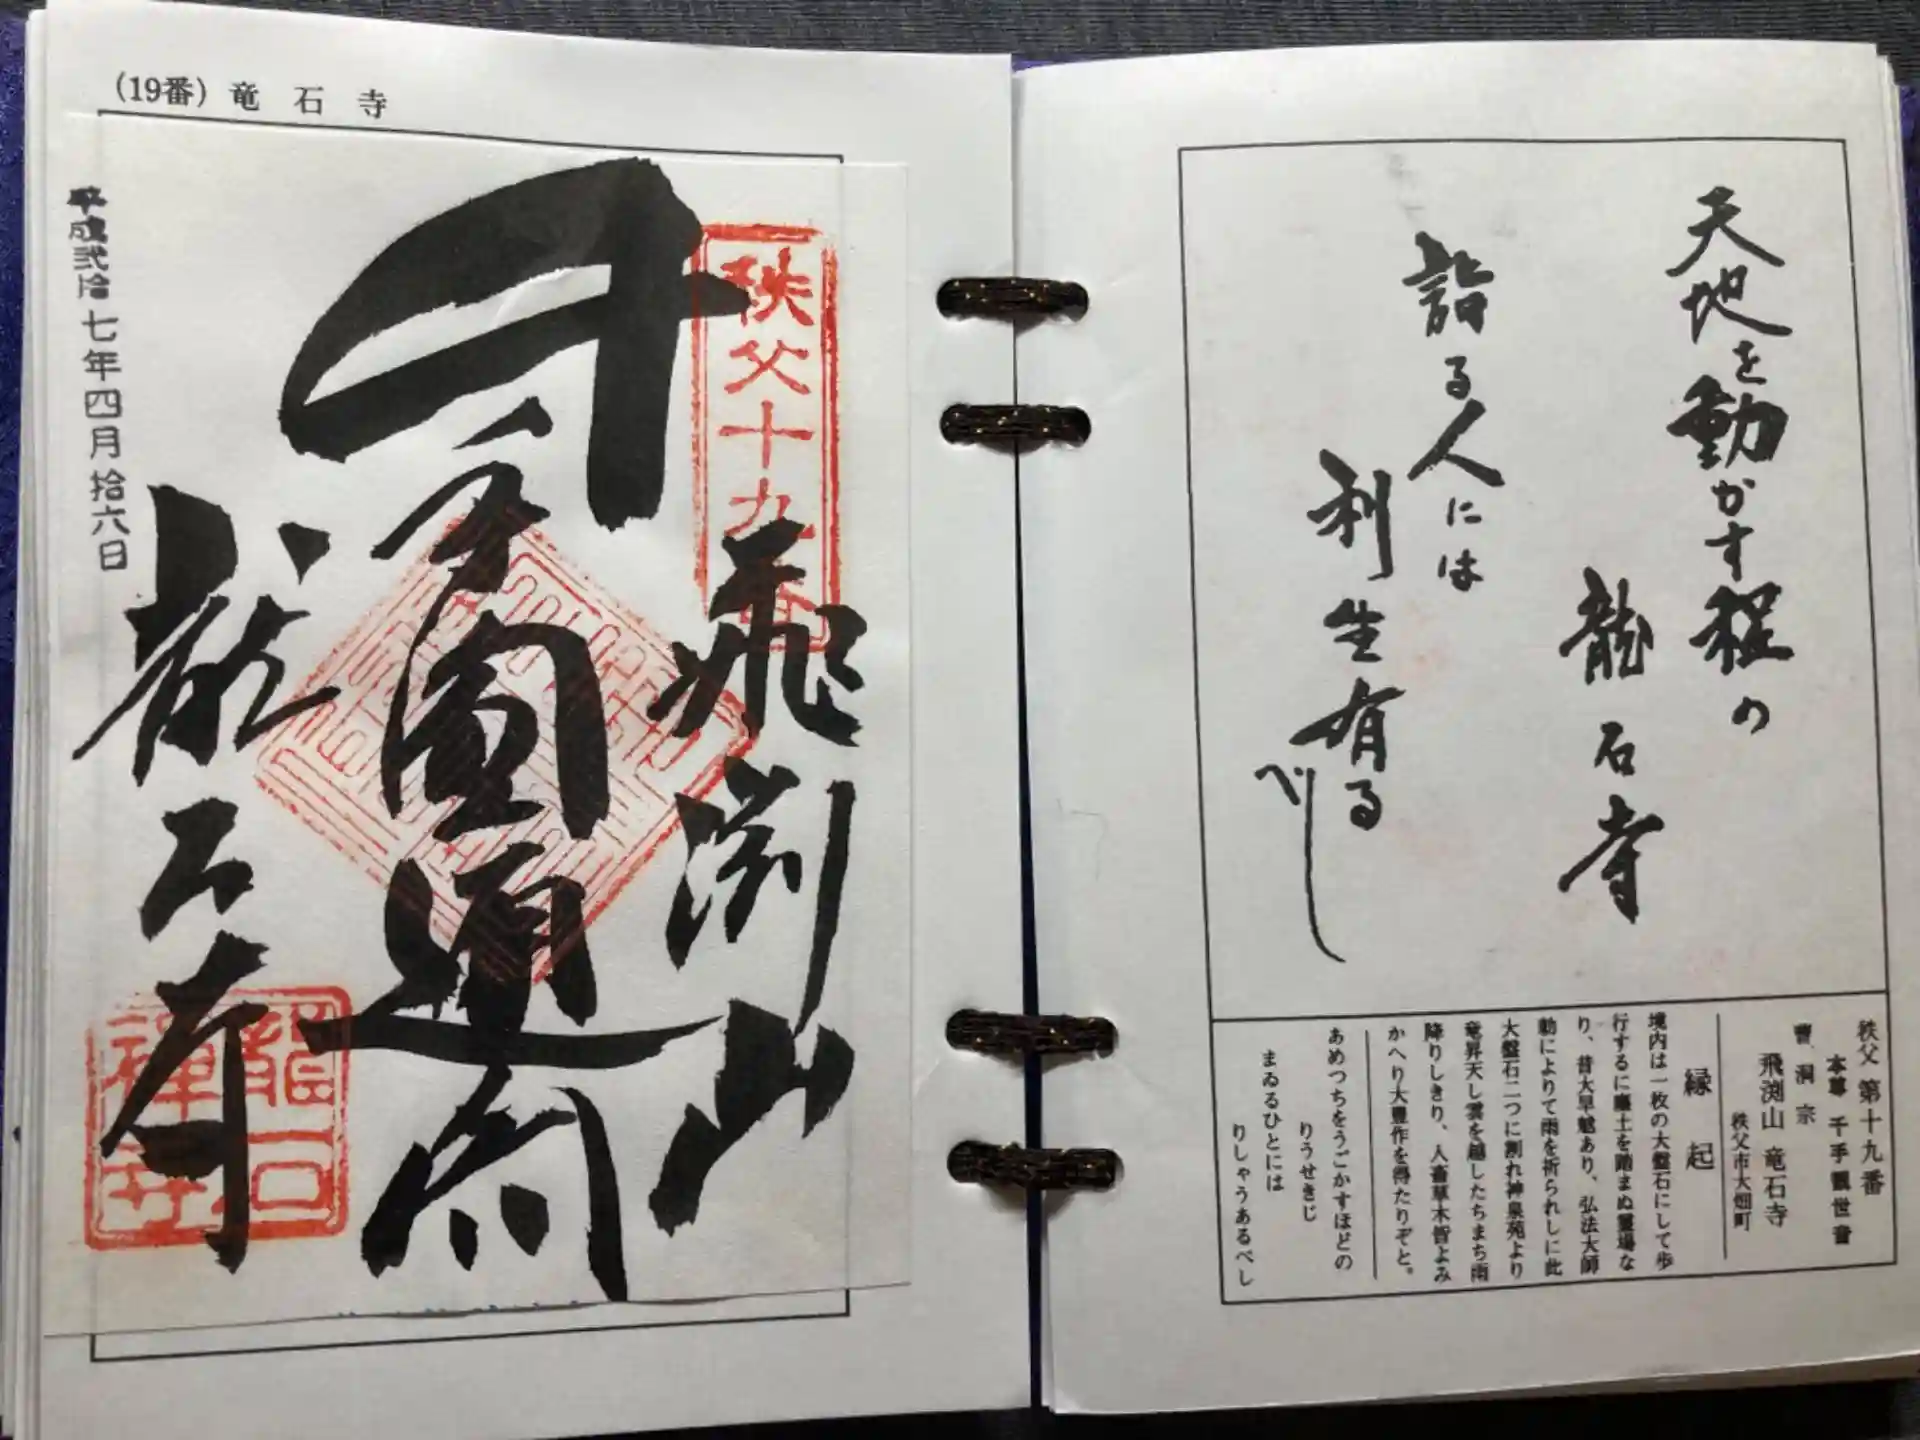 (19番) 竜石寺
秩父十九番
飛渕山
圓通
龍石寺
平成弐拾七年四月拾六日
龍石
禅寺
天地を動かす程の
龍石寺
詣る人には
利生有る
べし
秩父 第十九番
本尊 千手観世音
曹洞宗
飛渕山 竜石寺
秩父市大畑町
縁起
境内は一枚の大盤石にして歩
行するに塵土を踏まぬ霊場な
り、昔大旱魃あり、弘法大師
勅によりて雨を祈られしに此
大盤石二つに割れ神泉苑より
竜昇天し雲を越したちまち雨
降りしきり、人畜草木皆よみ
かへり大豊作を得たりぞと。
あめつちをうごかすほどの
りうせきじ
まゐるひとには
りしゃうあるべし